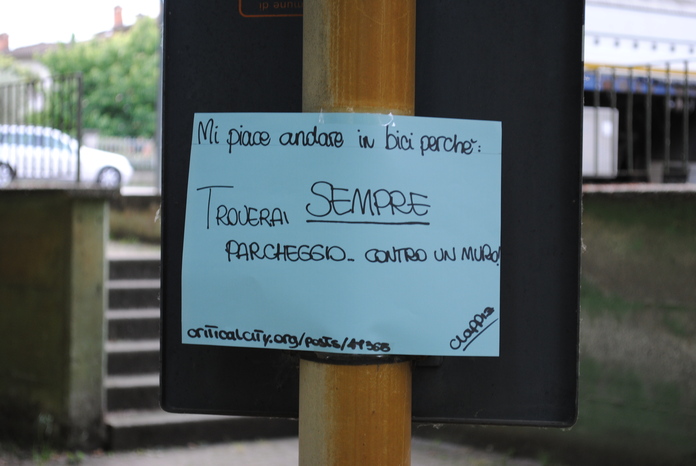 Mi piace andare in bici perchè:
TROVERAI SEMPRE
PARCHEGGIO... CONTRO UN MURO!
criticalcity.org/posts/11968